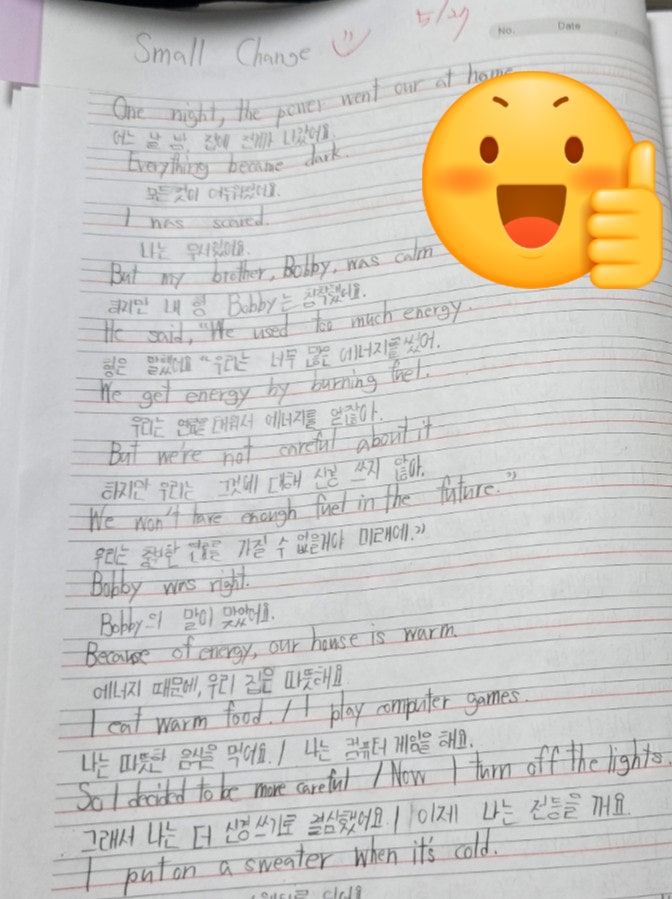 5/27
No. Date
Small Change
One night, the power went our at home
어느 날 밤, 집에 전기가 나갔어요.
Everything became dark.
모든것이 어두워졌어요.
I was scared.
나는 무서웠어요.
But my brother, Bobby, was calm
하지만 내 형 Bobby는 침착했어요.
He said, "We used too much energy.
형은 말했어요 "우리는 너무 많은 에너지를 썼어.
We get energy by burning fuel.
우리는 연료를 태워서 에너지를 얻잖아.
But we're not careful about it
하지만 우리는 그것에 대해 신경 쓰지 않아.
We won't have enough fuel in the future."
우리는 충분한 연료를 가질 수 없을거야 미래에."
Bobby was right.
Bobby의 말이 맞았어요.
Because of energy, our house is warm.
에너지 때문에, 우리 집은 따뜻해요
I eat warm food. / I play computer games.
나는 따뜻한 음식을 먹어요. / 나는 컴퓨터 게임을 해요.
So I decided to be more careful / Now I turn off the lights.
그래서 나는 더 신경쓰기로 결심했어요. / 이제 나는 전등을 꺼요.
I put on a sweater when it's cold.